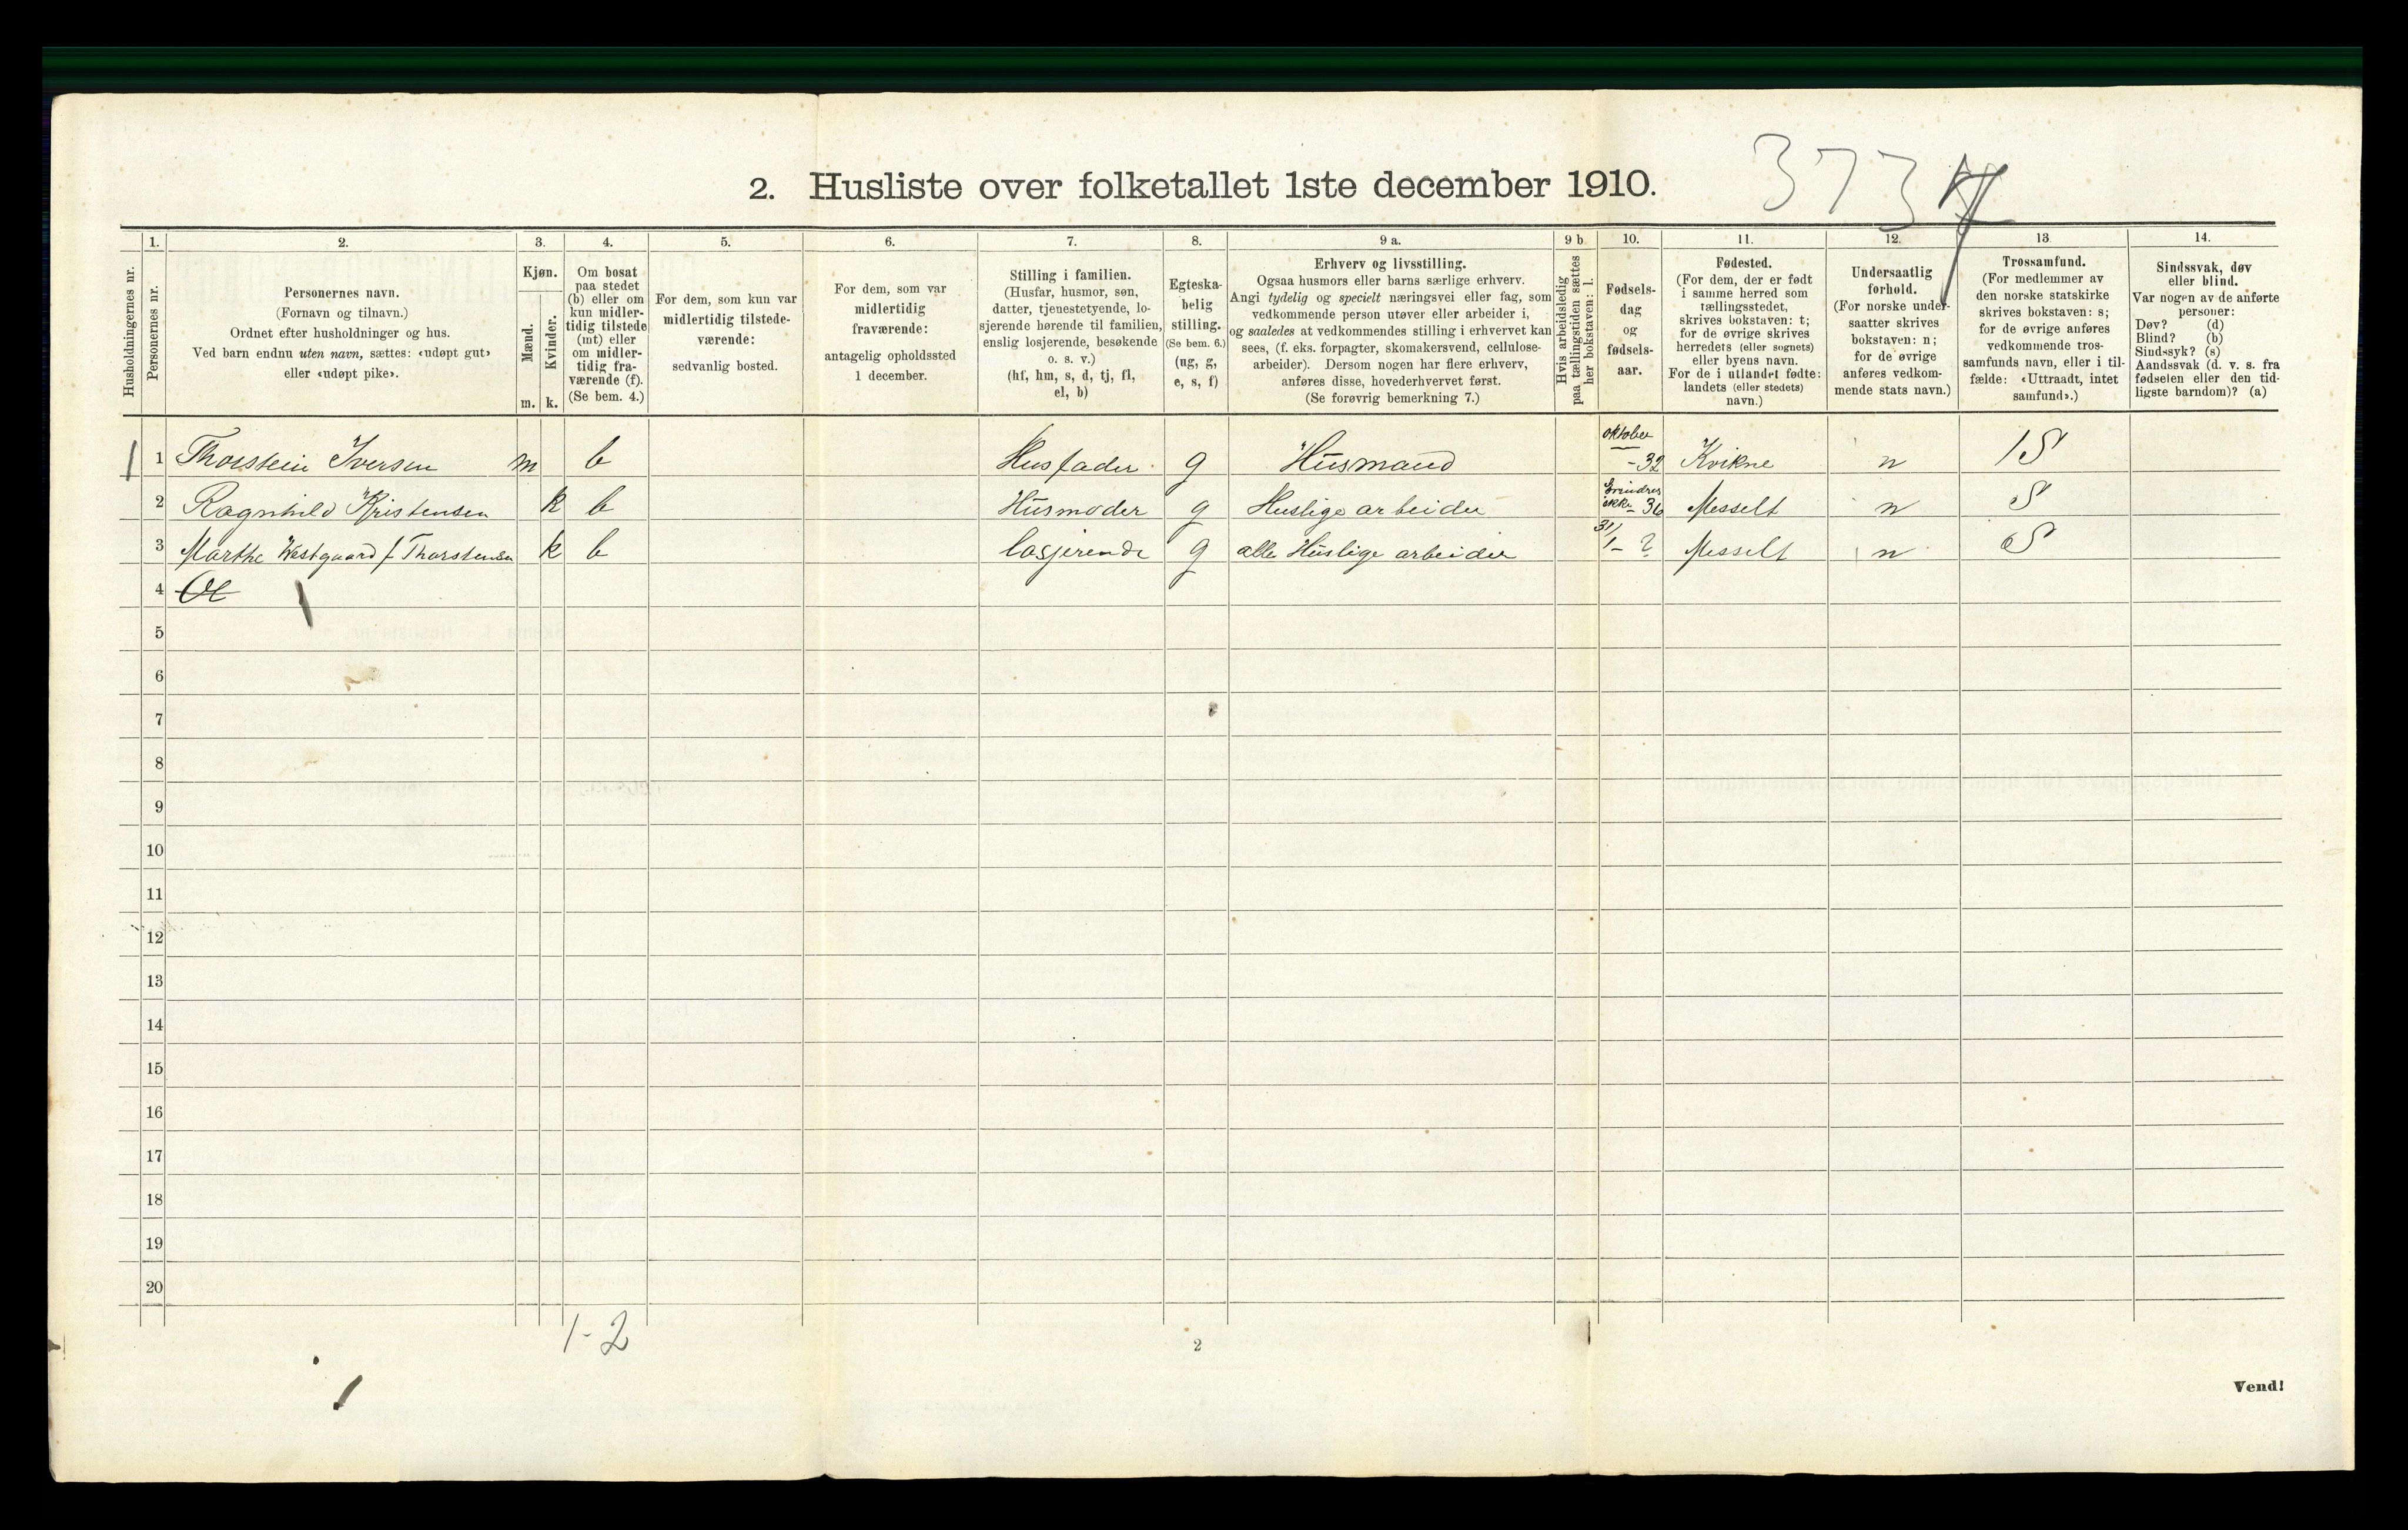 3734
2. Husliste over folketallet 1ste december 1910.
Husholdningernes nr.
1. Personernes nr.
2. Personernes navn.
(Fornavn og tilnavn.)
Ordnet efter husholdninger og hus.
Ved barn endnu uten navn, sættes: «udøpt gut»
eller «udøpt pike».
3. Kjøn.
Mænd. m.
Kvinder. k.
4. Om bosat
paa stedet
(b) eller om
kun midler-
tidig tilstede
(mt) eller
om midler-
tidig fra-
værende (f).
(Se bem. 4.)
5. For dem, som kun var
midlertidig tilstede-
værende:
sedvanlig bosted.
6. For dem, som var
midlertidig
fraværende:
antagelig opholdssted
1 december.
7. Stilling i familien.
(Husfar, husmor, søn,
datter, tjenestetyende, lo-
sjerende hørende til familien,
enslig losjerende, besøkende
o. s. v.)
(hf, hm, s, d, tj, fl,
el, b)
8. Egteska-
belig
stilling.
(Se bem. 6.)
(ug, g,
e, s, f)
9 a. Erhverv og livsstilling.
Ogsaa husmors eller barns særlige erhverv.
Angi tydelig og specielt næringsvei eller fag, som
vedkommende person utøver eller arbeider i,
og saaledes at vedkommendes stilling i erhvervet kan
sees, (f. eks. forpagter, skomakersvend, cellulose-
arbeider). Dersom nogen har flere erhverv,
anføres disse, hovederhvervet først.
(Se forøvrig bemerkning 7.)
9 b Hvis arbeidsledig
paa tællingstiden sættes
her bokstaven: l.
10. Fødsels-
dag
og
fødsels-
aar.
11. Fødested.
(For dem, der er født
i samme herred som
tællingsstedet,
skrives bokstaven: t;
for de øvrige skrives
herredets (eller sognets)
eller byens navn.
For de i utlandet fødte:
landets (eller stedets)
navn.)
12. Undersaatlig
forhold.
(For norske under-
saatter skrives
bokstaven: n;
for de øvrige
anføres vedkom-
mende stats navn.)
13 Trossamfund.
(For medlemmer av
den norske statskirke
skrives bokstaven: s;
for de øvrige anføres
vedkommende tros-
samfunds navn, eller i til-
fælde: «Uttraadt, intet
samfund».)
14. Sindssvak, døv
eller blind.
Var nogen av de anførte
personer:
Døv? (d)
Blind? (b)
Sindssyk? (s)
Aandssvak (d. v. s. fra
fødselen eller den tid-
ligste barndom)? (a)
1 1 Thorstein Iversen m b Husfader g Husmand oktober - 32 Kvikne n S
2 Ragnhild Kristensen k b Husmoder g Huslige arbeider Erindres ikke - 36 Messelt n S
3 Marthe Westgaard f Thorstensen k b losjerende g alle Huslige arbeider 31/1 - ? Messelt n S
4
5
6
7
8
9
10
11
12
13
14
15
16
17
18
19
20
1-2
2
Vend!